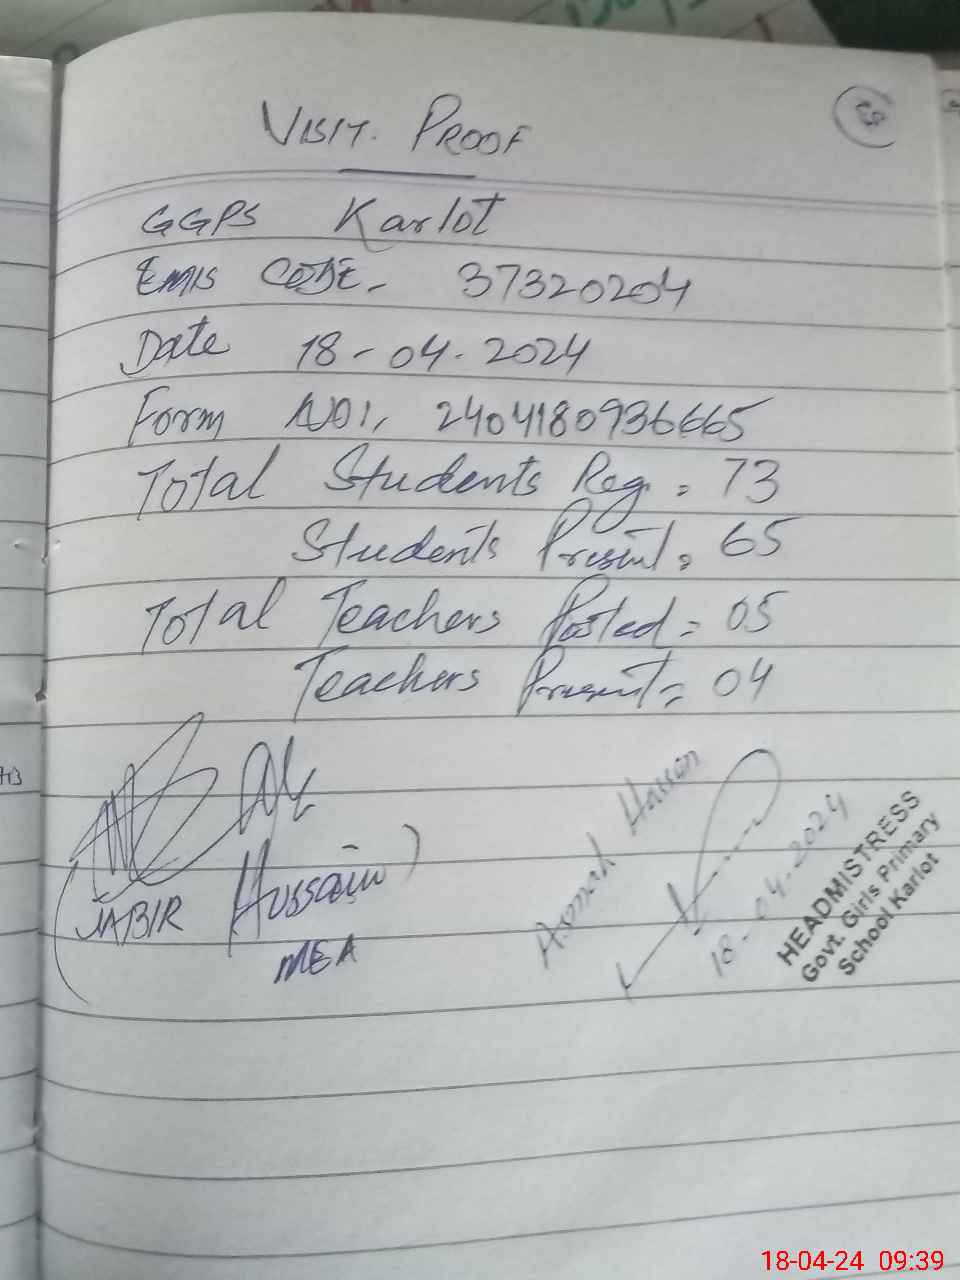 VISIT. PROOF
GGPS Karlot
EMIS CODE. 37320204
Date 18-04-2024
Form NO1, 2404180936665
Total Students Reg. = 73
Students Present = 65
Total Teachers Posted = 05
Teachers Present = 04
(JABIR Hussain)
MEA
Hassan
18-04-2024
HEADMISTRESS
Govt. Girls Primary
School Karlot
18-04-24 09:39